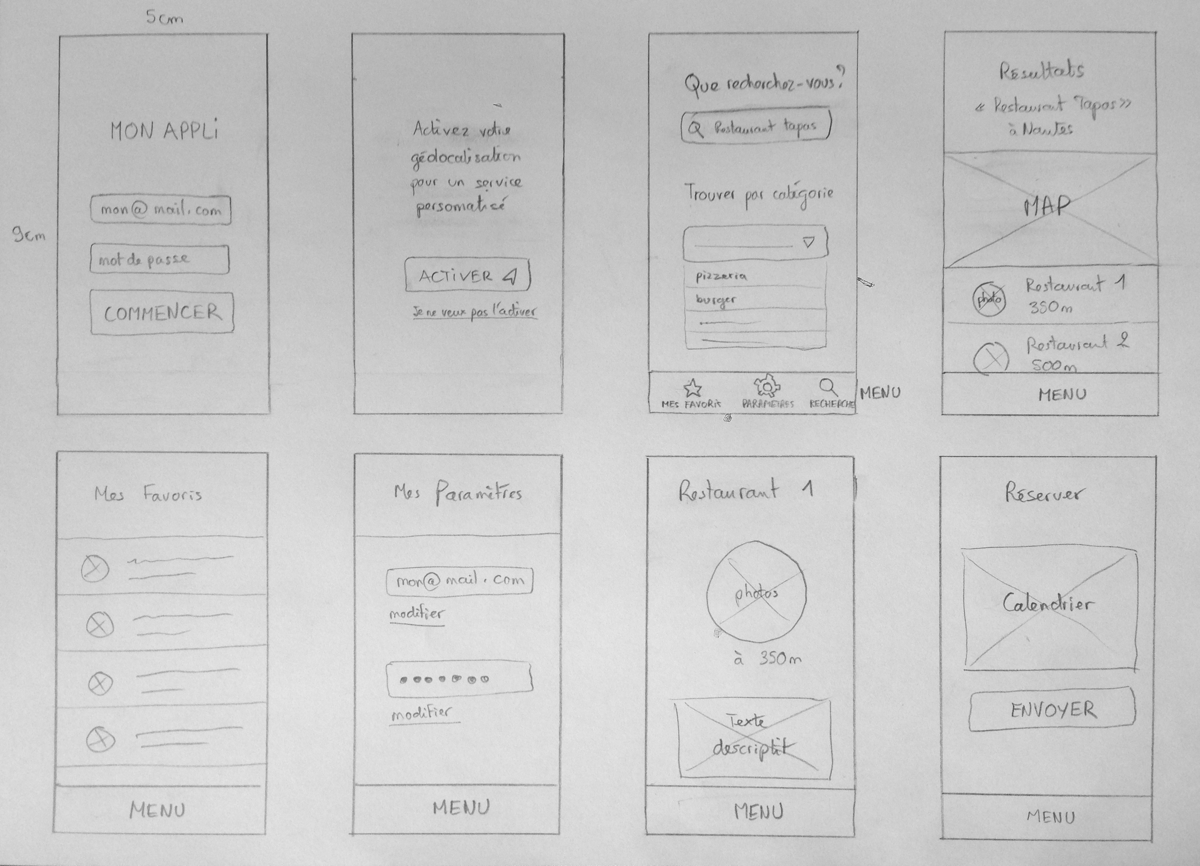 5cm
9cm
MON APPLi
mon@mail.com
mot de passe
COMMENCER
Activez votre
géolocalisation
pour un service
personnalisé
ACTIVER
Je ne veux pas l'activer
Que recherchez-vous?
Restaurant tapas
Trouver par catégorie
pizzeria
burger
MES FAVORIS
PARAMETRES
RECHERCHE
MENU
Résultats
« Restaurant Tapas »
à Nantes
MAP
photo
Restaurant 1
350m
Restaurant 2
500m
MENU
Mes Favoris
MENU
Mes Paramètres
mon@mail.com
modifier
modifier
MENU
Restaurant 1
photos
à 350m
Texte
descriptif
MENU
Réserver
Calendrier
ENVOYER
MENU